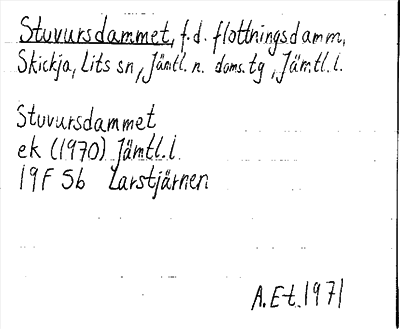 Stuvursdammet, f.d. flottningsdamm,
Skickja, Lits sn, Jämtl. n. doms. tg, Jämtl. l.
Stuvursdammet
ek (1970) Jämtl. l.
19F 5b Larstjärnen
A. Et. 1971